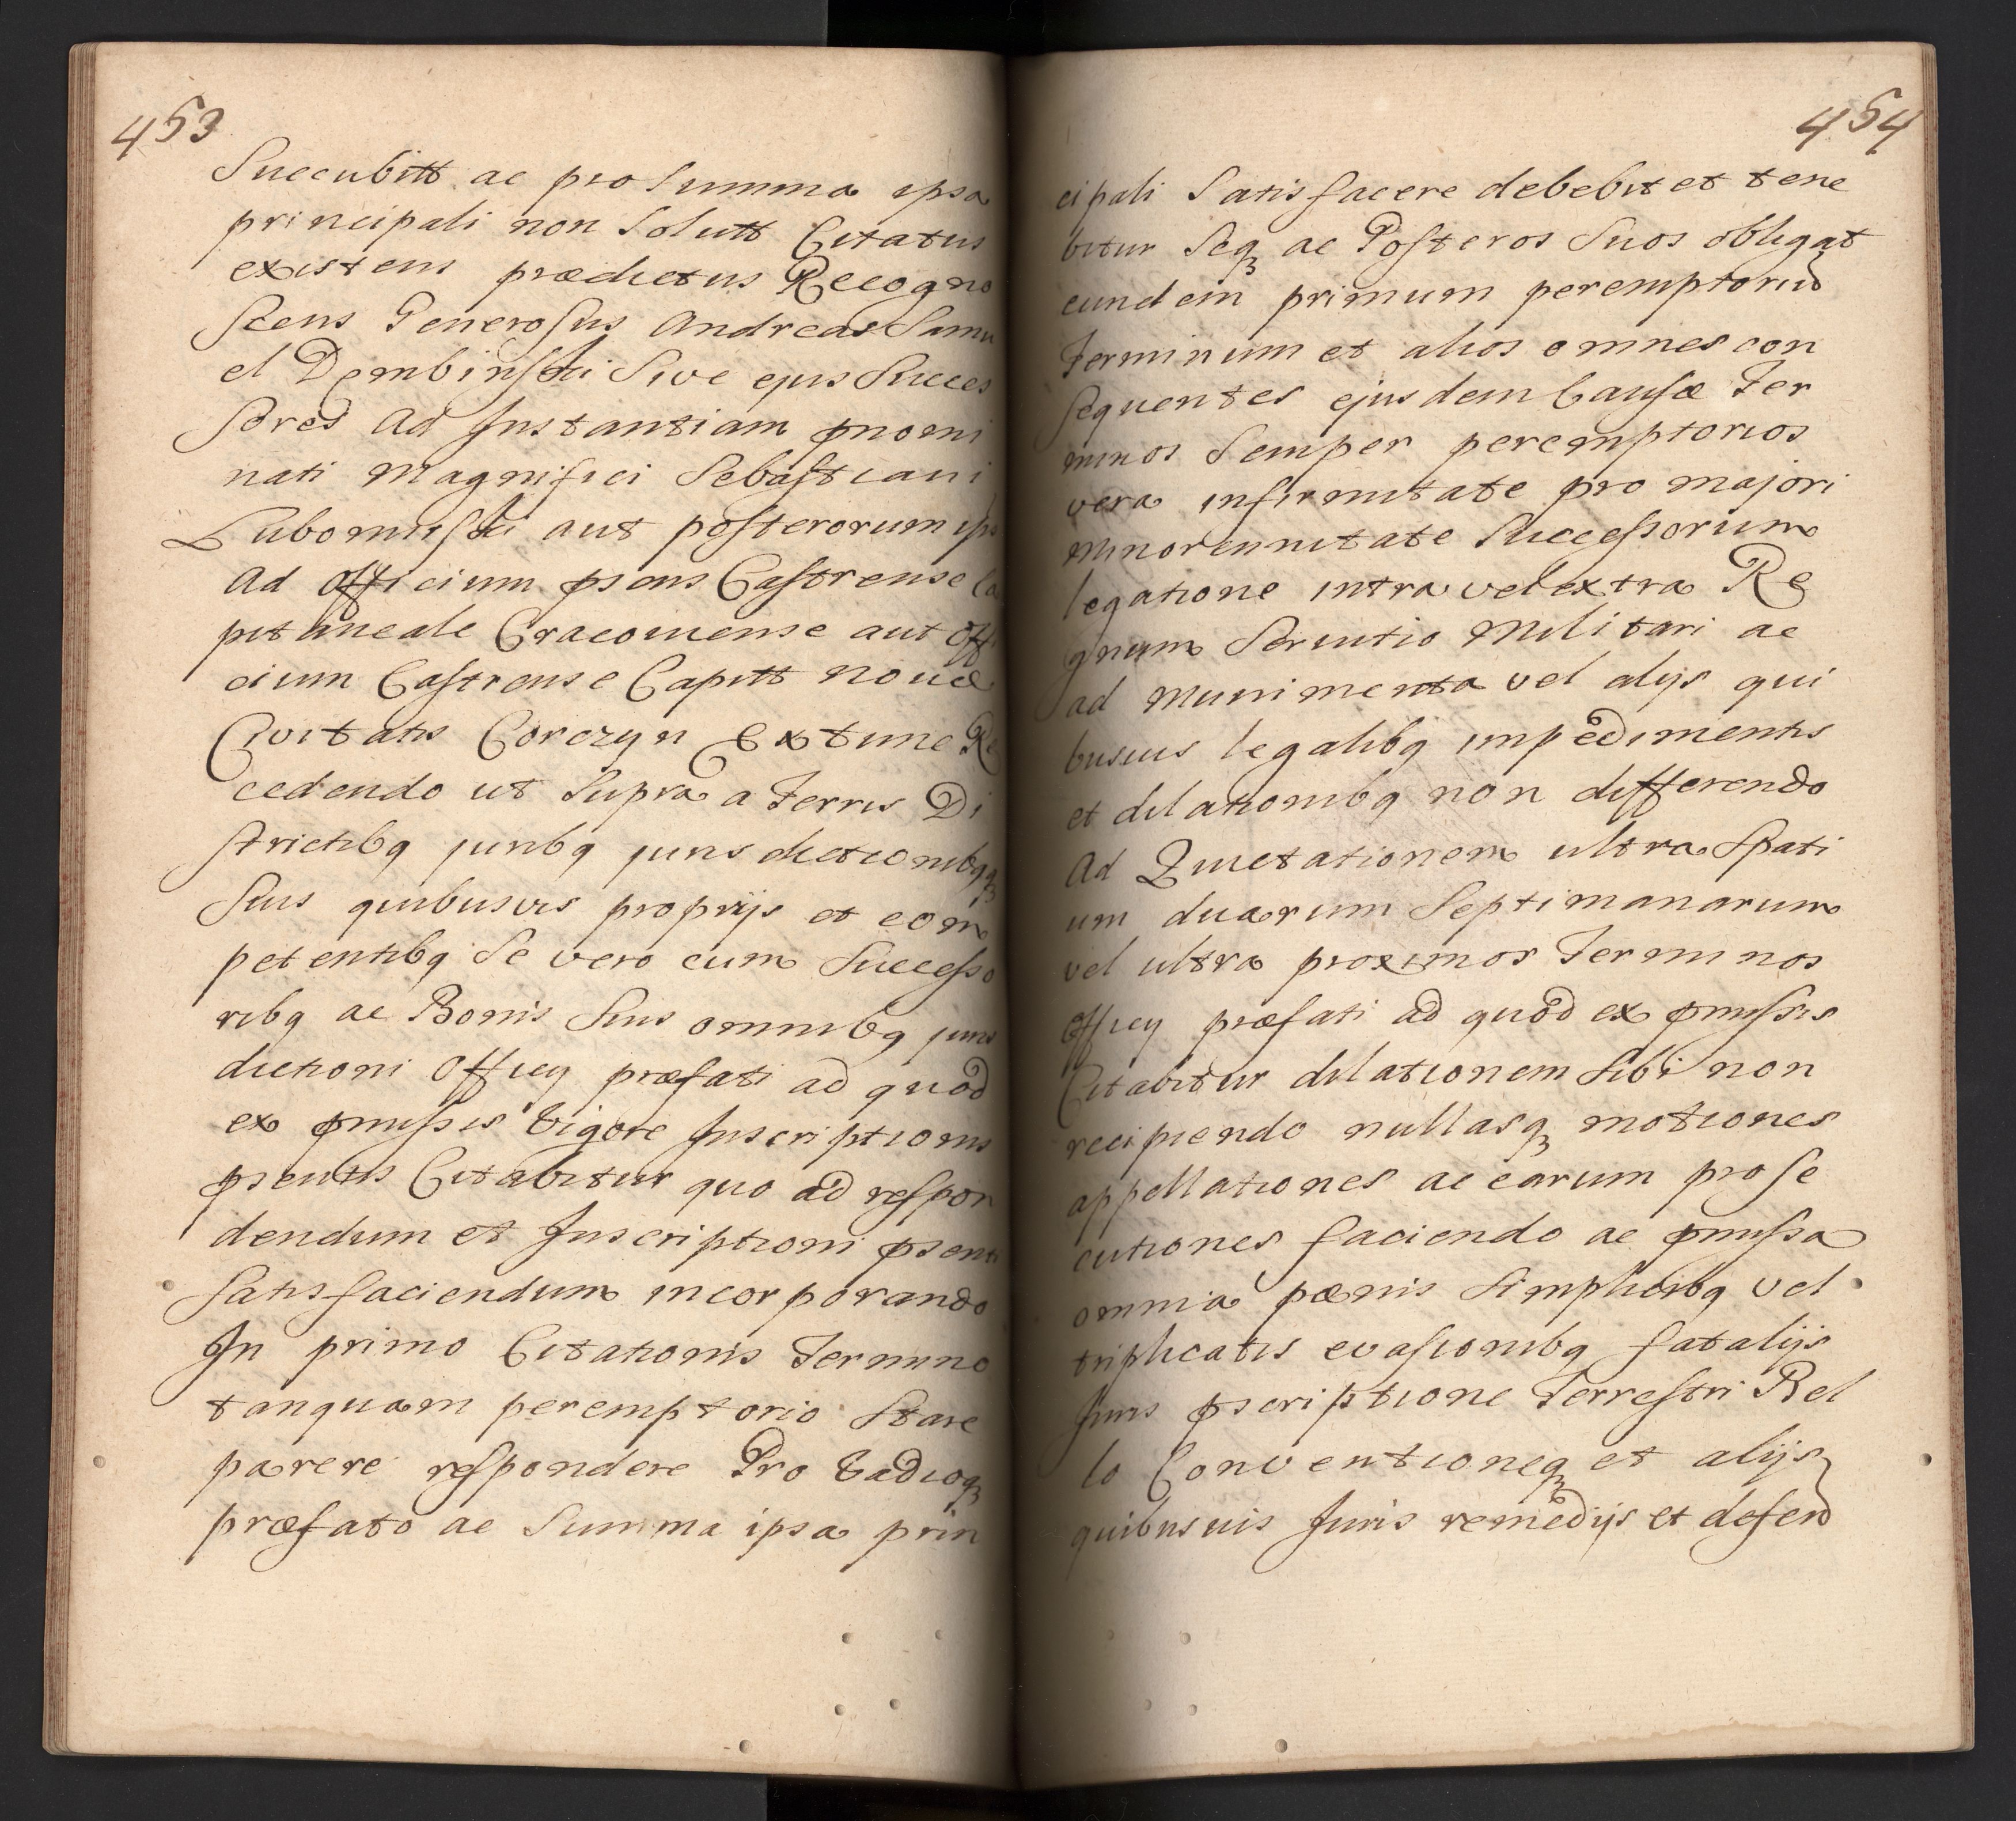 453
Succubitt ac pro Summa ipsa
principali non Solutt Citatus
existens prædictus Recogno
scens Generosus Andreas Samu
el Dembinski Sive ejus Succes
sores Ad Instantiam pnomi
nati Magnifici Sebastiani
Lubomirski aut posterorum ips
Ad Officium psens Castrense Ca
pitaneale Cracouiense aut Offi
cium Castrense Capitt Nouæ
Civitatis Corczyn Extunc Re
cedendo ut Supra a Terris Di
strictibq juribq jurisdictionibqq
Suis quibusvis proprijs et com
petentibq Se vero cum Successo
ribq ac Bonis Suis omnibq juris
dictioni Officij præfati ad quod
ex pmissis Vigore Inscriptionis
psentis Citabitur quo ad respon
dendum et Inscriptioni psenti
Satisfaciendum incorporando
In primo Citationis Termino
tanquam peremptorio Stare
parere respondere Pro Vadioq
præfato ac Summa ipsa prin
454
cipali Satisfacere debebit et tene
bitur Seq ac Posteros Suos obligat
eundem primum peremptoriu
Terminum et alios omnes con
sequentes ejusdem Causæ Ter
minos Semper peremptorios
vera infirmitate pro majori
Minorennitate Successorum
legatione intra vel extra Re
gnum Seruitio Militari ac
ad Munimenta vel alijs qui
busuis legalibq impedimentis
et dilationibq non differendo
Ad Quietationem ultra Spati
um duarum Septimanarum
vel ultra proximos Terminos
Officij præfati ad quod ex pmissis
Citabitur dilationem Sibi non
recipiendo nullasq motiones
appellationes ac earum prose
cutiones faciendo ac pmissa
omnia pœnis Simplicibq vel
triplicatis evasionibq fatalijs
Juris pscriptione Terrestri Bel
lo Conventioneq et alijs
quibusuis Juris remedijs et defens